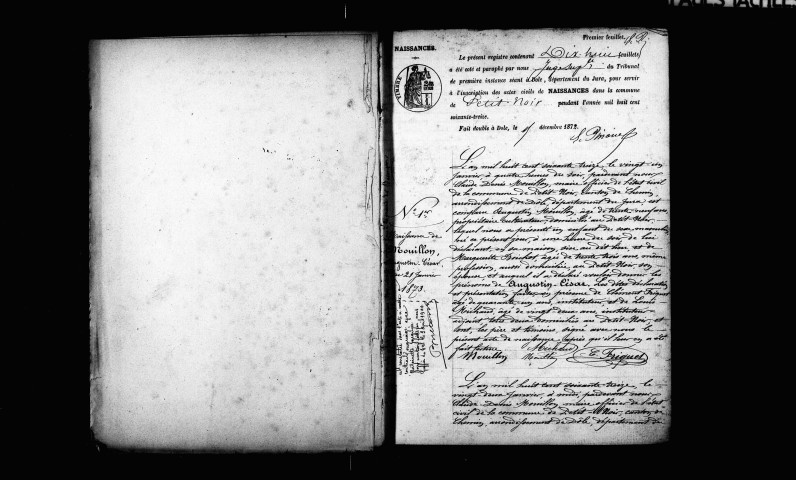 Premier feuillet.
NAISSANCES.
Le présent registre contenant Dix huit feuillets
a été coté et paraphé par nous Juge supt du Tribunal
de première instance séant à Dole, département du Jura, pour servir
à l'inscription des actes civils de NAISSANCES dans la commune
de Petit Noir pendant l'année mil huit cent
soixante-treize.
Fait double à Dole, le décembre 1872.
TIMBRE
L'an mil huit cent soixante treize, le vingt-un
janvier, à quatre heures du soir, pardevant nous
Claude Denis Mouillon, maire officier de l'état civil
de la commune de Petit Noir, canton de Chemin,
arrondissement de Dôle, département du Jura, est
comparu Augustin Mouillon, âgé de trente neuf ans
propriétaire cultivateur, domicilié au Petit Noir,
lequel nous a présenté un enfant du sexe masculin
né à présent jour, à une heure du soir de lui
déclarant, en sa maison, sise au dit lieu et de
Marguerite Boichot, âgée de trente trois ans, même
profession, aussi domiciliée au Petit Noir, son
épouse et auquel il a déclaré vouloir donner les
prénoms de Augustin-César. Les dites déclaration
et présentation faites en présence de Clément Friquet
âgé de quarante un ans, instituteur, et de Louis
Michaud, âgé de vingt deux ans, instituteur
adjoint tous deux domiciliés au Petit Noir, et
ont, les père et témoins, signé avec nous le
présent acte de naissance après qu'il leur en a été
fait lecture Michaud
Mouillon Mouillon C. Friquet
N° 1er
Naissance de
Mouillon,
Augustin-César,
21 Janvier
1873.
L'an mil huit cent soixante treize, le
vingt-deux janvier, à midi, pardevant nous
Claude Denis Mouillon, maire officier de l'état
civil de la commune de Petit Noir, canton de
Chemin, arrondissement de Dôle, département du